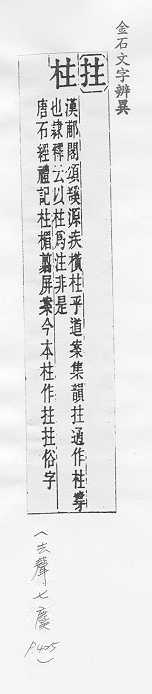 金石文字辨異
拄
柱
漢郙閣頌發源疾橫柱乎道案集韻拄通作柱孽
也隸釋云以柱爲注非是
唐石經禮記柱楣翦屏案今本柱作拄拄俗字
(去聲七麌
P.405)